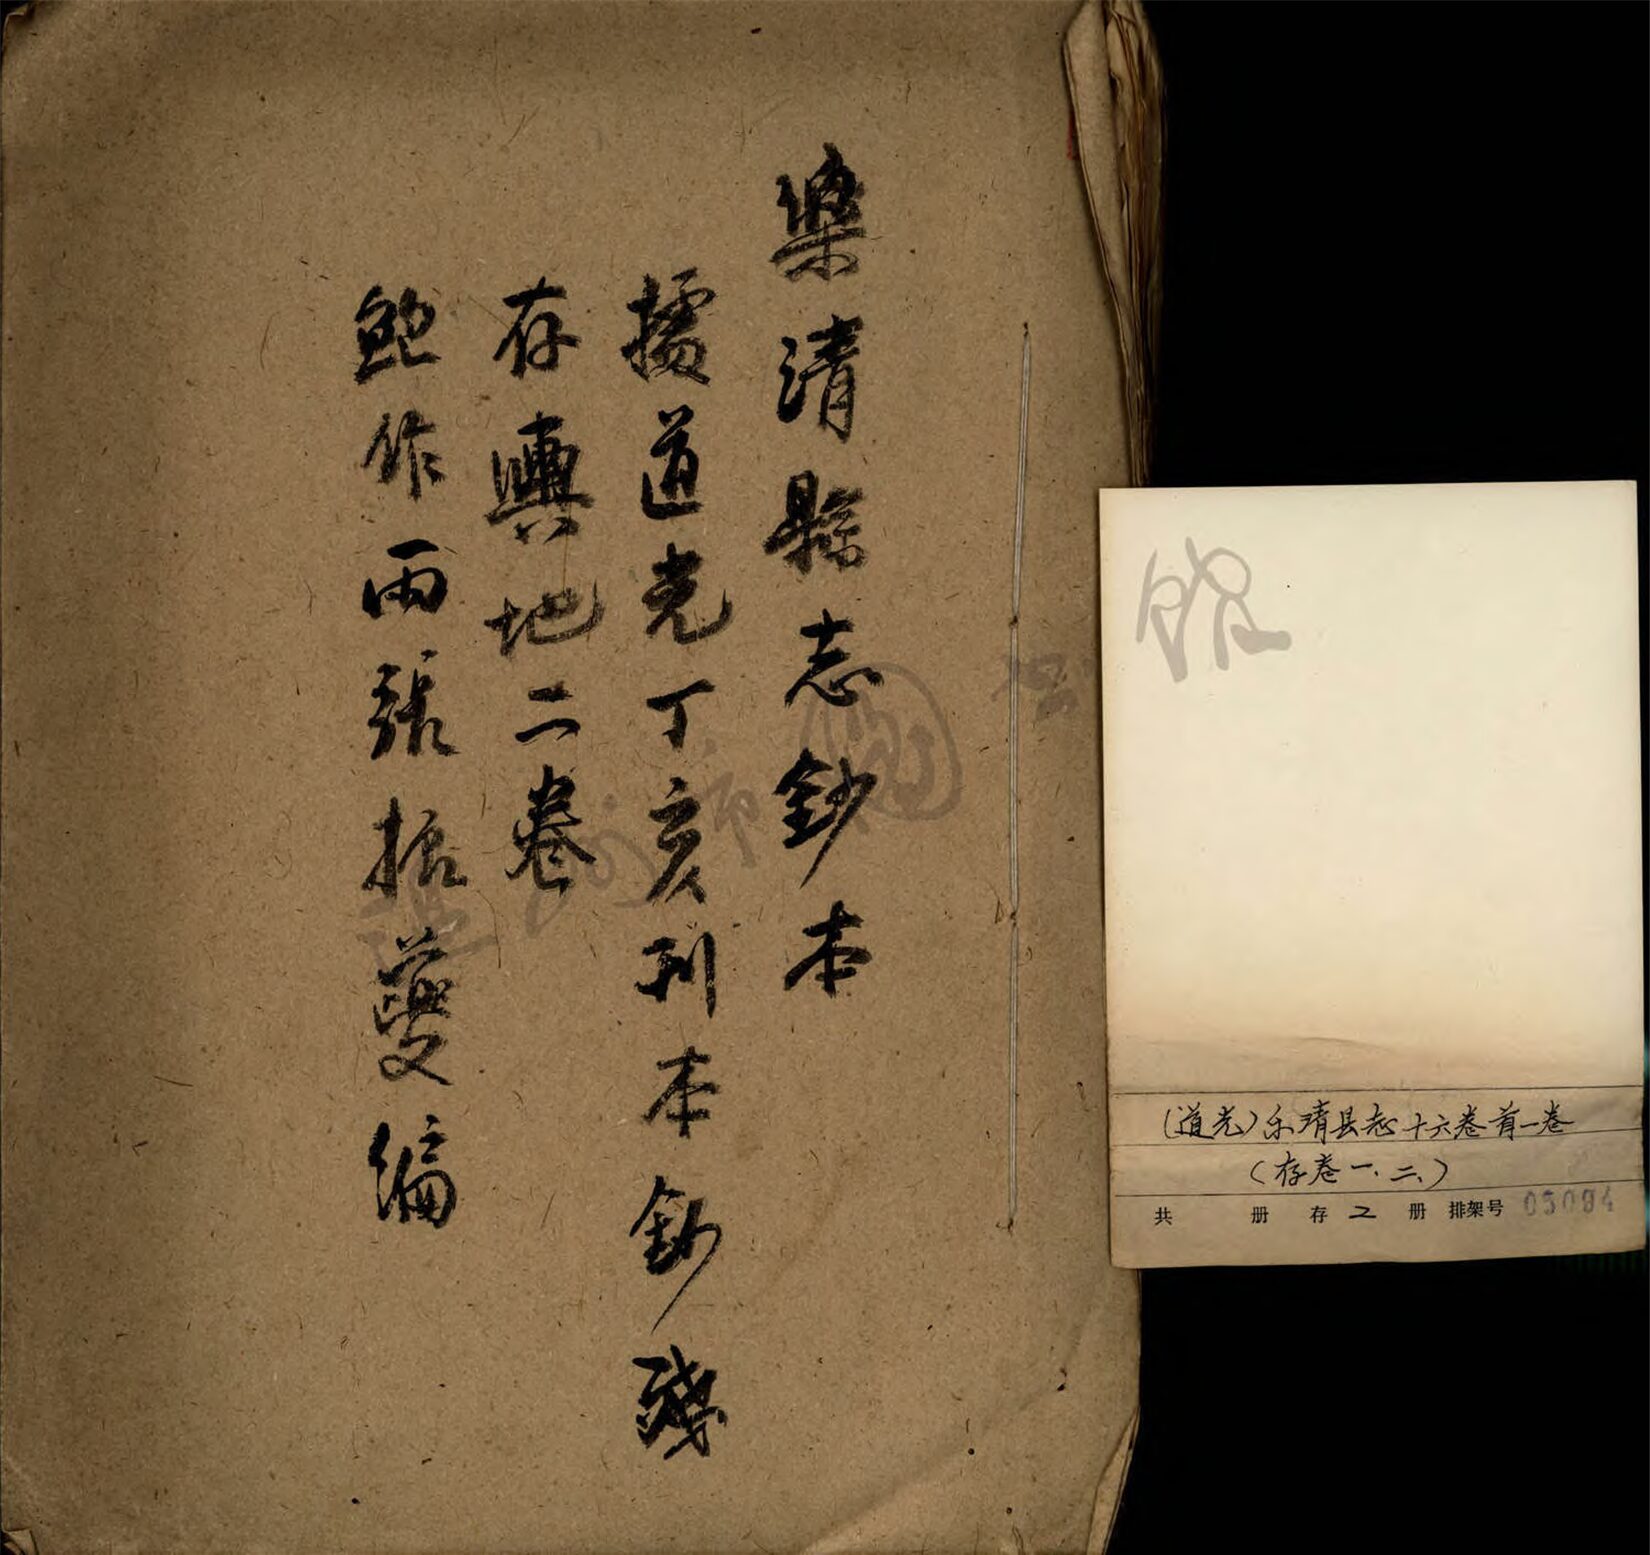 樂清縣志鈔本
據道光丁亥刊本鈔殘
存輿地二卷
鲍作雨張振夔編
(道光)乐清县志十六卷首一卷
(存卷一、二、)
共 册 存 2 册 排架号 05094